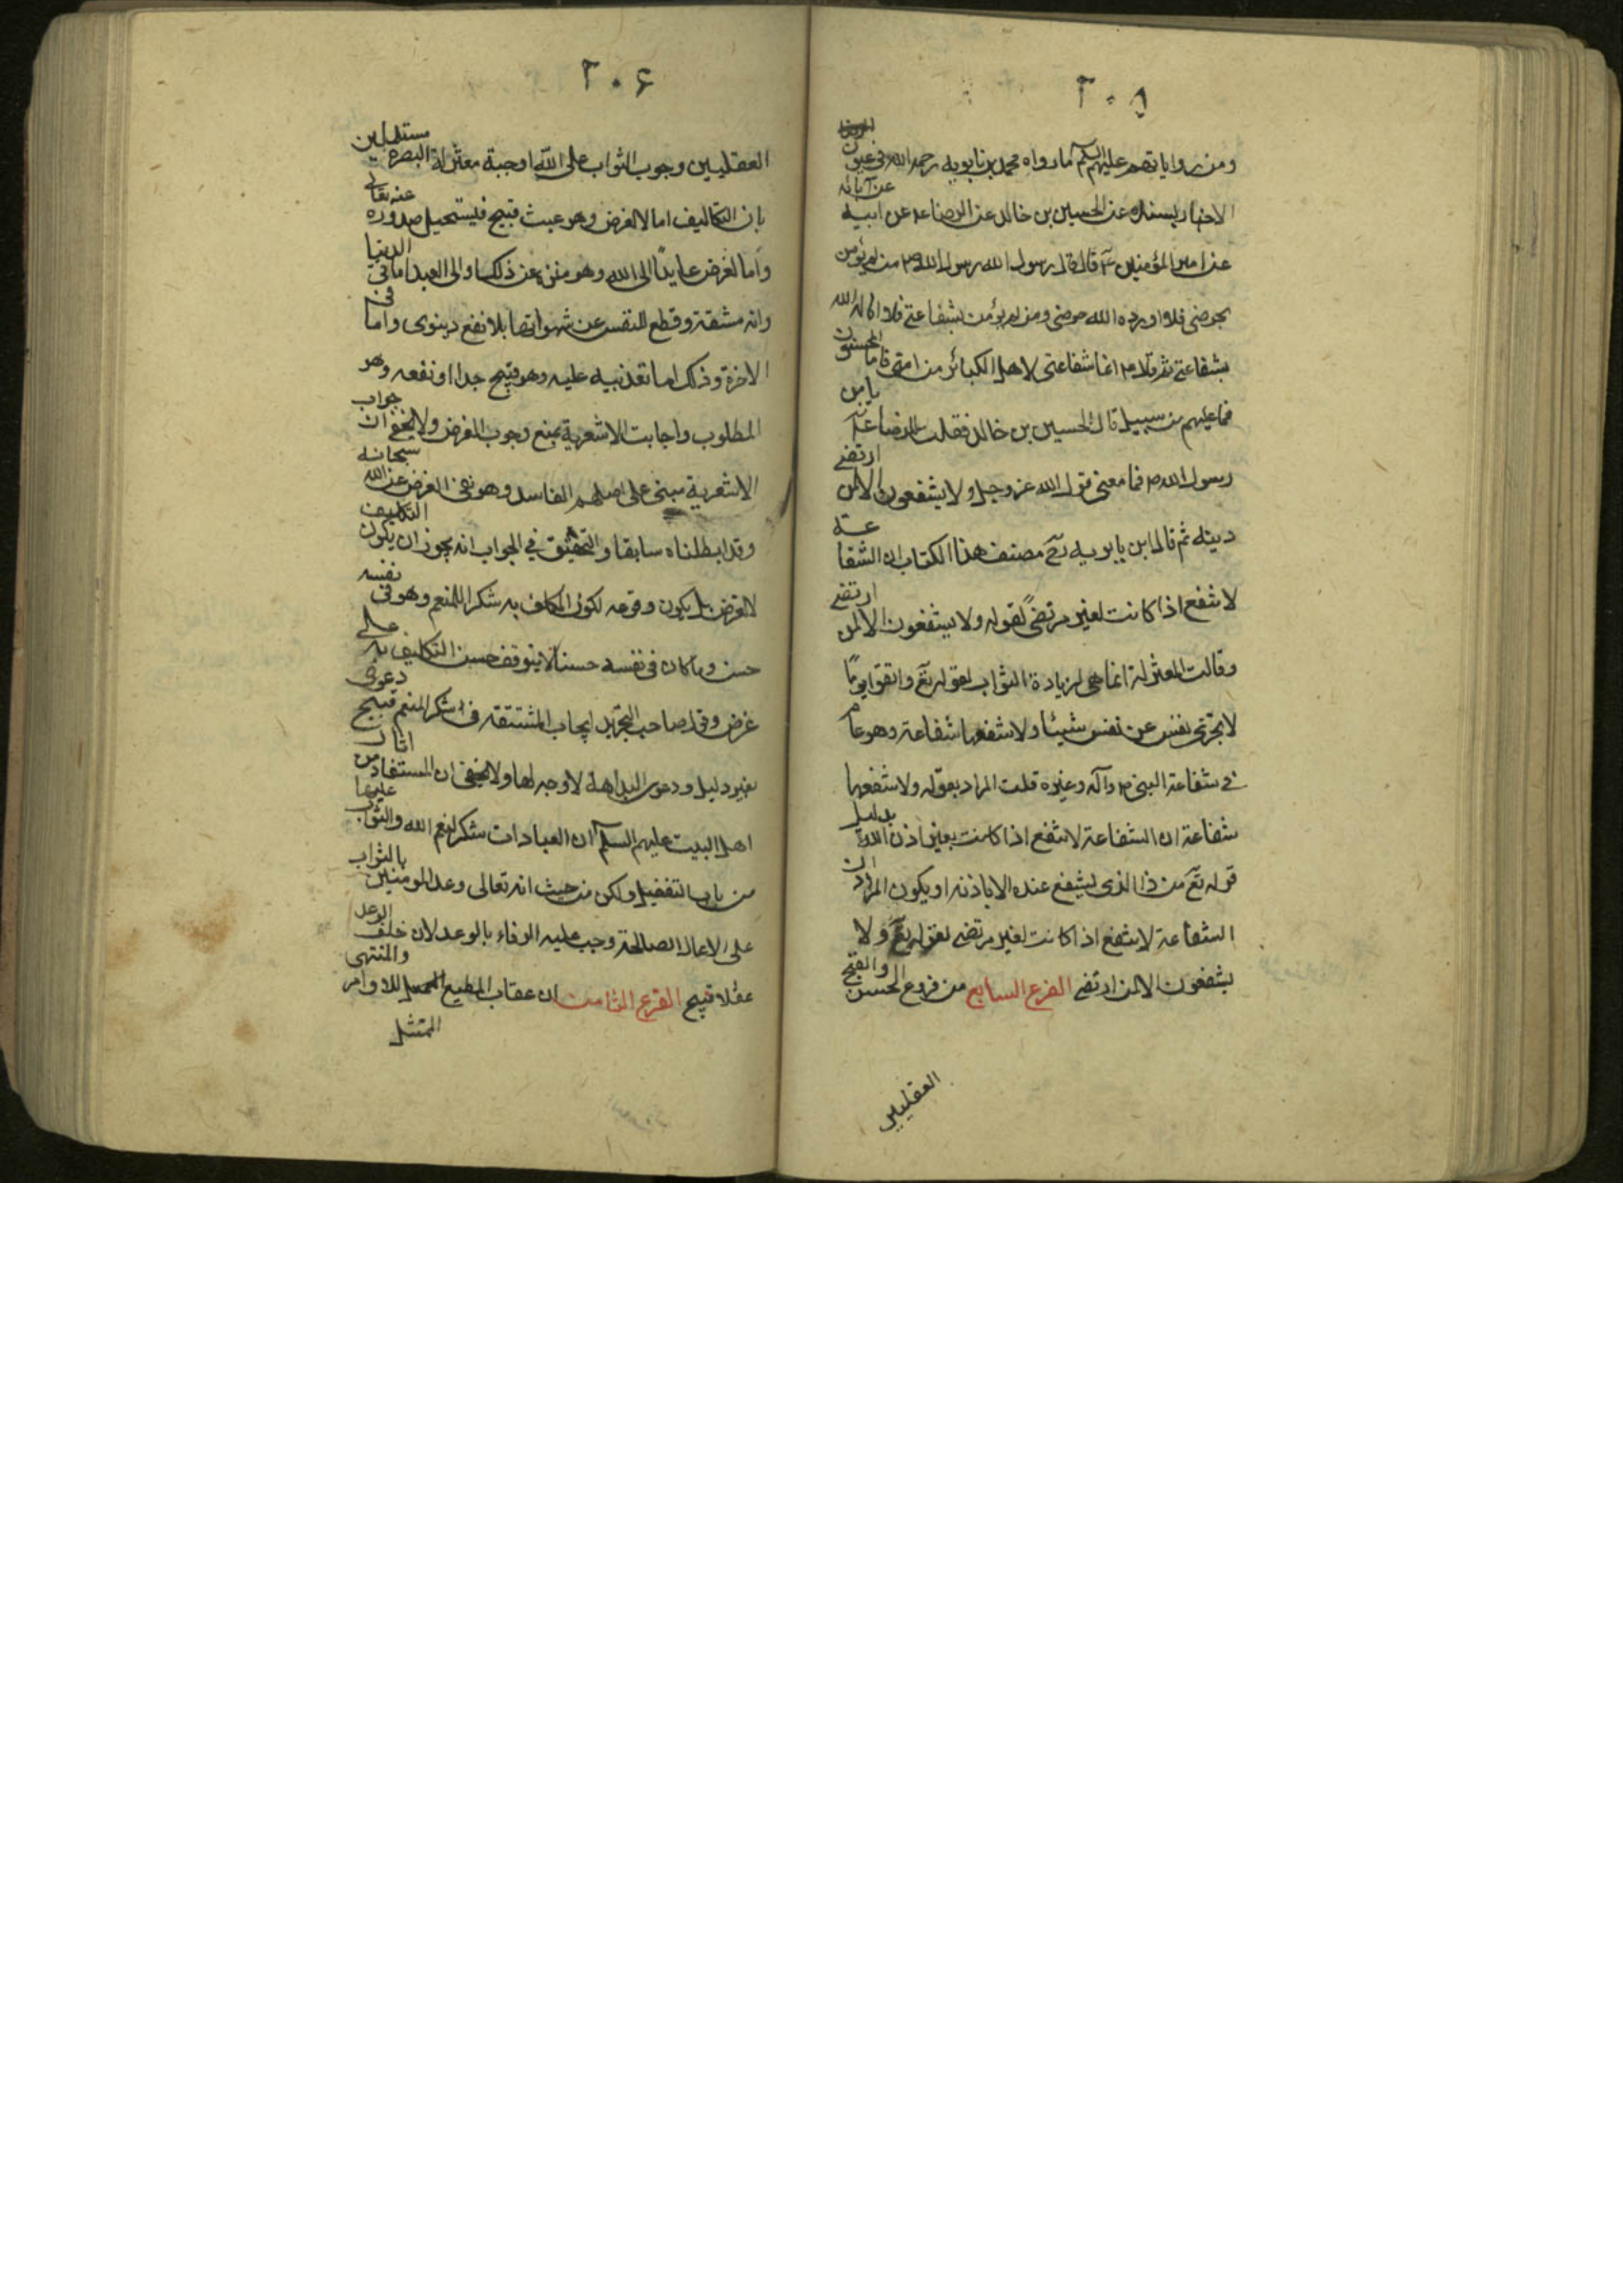 ٢٠٥
ومن رواياتهم عليهم السلم ما رواه محمد بن بابويه رحمه الله في عيون
الاخبار بسنده عن الحسين بن خالد عن الرضا عن ابيه عن آبائه
عن امير المؤمنين ع قال قال رسول الله رسول الله ص من لم يؤمن
بحوضى فلا اورده الله حوضى ومن لم يؤمن بشفاعتى فلا اناله الله
بشفاعتى ثم قال ص انما شفاعتى لاهل الكبائر من امتى فاما المحسنون
فما عليهم من سبيل قال الحسين بن خالد فقلت للرضا ع يا بن
رسول الله ص فما معنى قول الله عز وجل ولا يشفعون الا لمن ارتضى
دينه ثم قال ابن بابويه مصنف هذا الكتاب ان الشفاعة
لا تنفع اذا كانت لغير مرتضى لقوله ولا يشفعون الا لمن ارتضى
وقالت المعتزلة انما هى لزيادة الثواب لقوله تع واتقوا يوما
لا تجزى نفس عن نفس شيئا ولا تنفعها شفاعة وهو عام
في شفاعة النبى ص وآله وغيره قلت المراد بقوله ولا تنفعها
شفاعة ان الشفاعة لا تنفع اذا كانت بغير اذن الله بدليل
قوله تع من ذا الذى يشفع عنده الا باذنه او يكون المراد ان
الشفاعة لا تنفع اذا كانت لغير مرتضى لقوله تع ولا
يشفعون الا لمن ارتضى الفرع السابع من فروع الحسن والقبح
العقليين
٢٠۶
العقليين وجوب الثواب على الله اوجبه معتزلة البصرة مستدلين
بان التكاليف اما لا لغرض وهو عبث قبيح فيستحيل صدوره عنه تعالى
واما لغرض عايدا الى الله وهو منزه عن ذلك او الى العبد اما في الدنيا
وانه مشقة وقطع للنفس عن شهواتها بلا نفع دينوى واما في
الاخرة وذلك اما تعذيبه عليه وهو قبيح جدا او نفعه وهو
المطلوب واجابت الاشعرية بمنع وجوب الغرض ولا يخفى ان جواب
الاشعرية مبنى على اصلهم الفاسد وهو نفى الغرض عن الله سبحانه
وقد ابطلناه سابقا والتحقيق في الجواب انه يجوز ان يكون التكليف
لا لغرض بل يكون وقوعه لكون المكلف به شكرا للمنعم وهو في نفسه
حسن وما كان في نفسه حسنا لا يتوقف حسن التكليف به على
غرض وقول صاحب التجريد ايجاب المشقة في شكر المنعم قبيح دعوى
بغير دليل ودعوى البداهة لا وجه لها ولا يخفى ان المستفاد من اثار
اهل البيت عليهم السلم ان العبادات شكر لنعم الله والثواب عليها
من باب التفضيل ولكن من حيث انه تعالى وعد المومنين بالثواب
على الاعمال الصالحة وجب عليه الوفاء بالوعد لان خلف الوعد
عقلا قبيح الفرع الثامن ان عقاب المطيع للاوامر والمنتهى
الممتثل